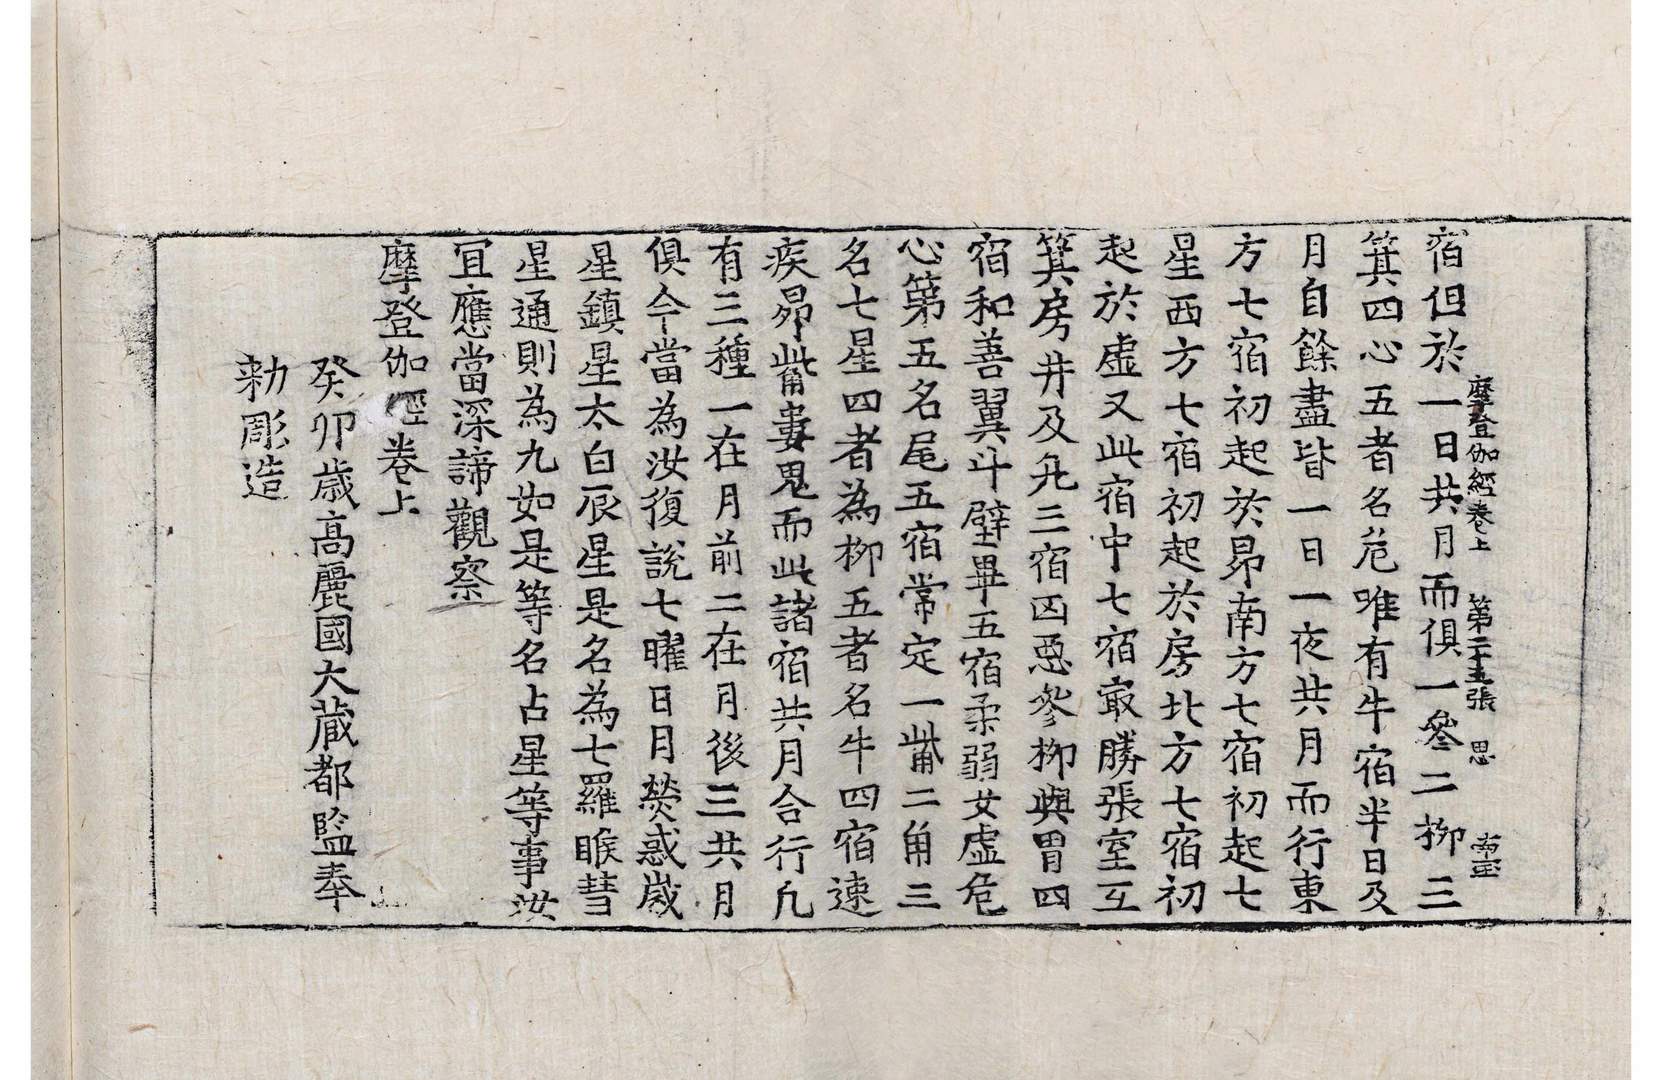 摩登伽經卷上　第二十五張　思
宿但於一日共月而俱一參二柳三
箕四心五者名危唯有牛宿半日及
月自餘盡皆一日一夜共月而行東
方七宿初起於昴南方七宿初起七
星西方七宿初起於房北方七宿初
起於虛又此宿中七宿㝡勝張室互
箕房井及氐三宿囚惡參柳與胃四
宿和善翼斗壁畢五宿柔弱女虛危
心第五名尾五宿常定一觜二角三
名七星四者為柳五者名牛四宿速
疾昴觜婁鬼而此諸宿共月合行凡
有三種一在月前二在月後三共月
俱今當為汝復說七曜日月熒惑歲
星鎮星太白辰星是名為七羅睺彗
星通則為九如是等名占星等事汝
冝應當深諦觀察
摩登伽經卷上
癸卯歲高麗國大藏都監奉
勑彫造